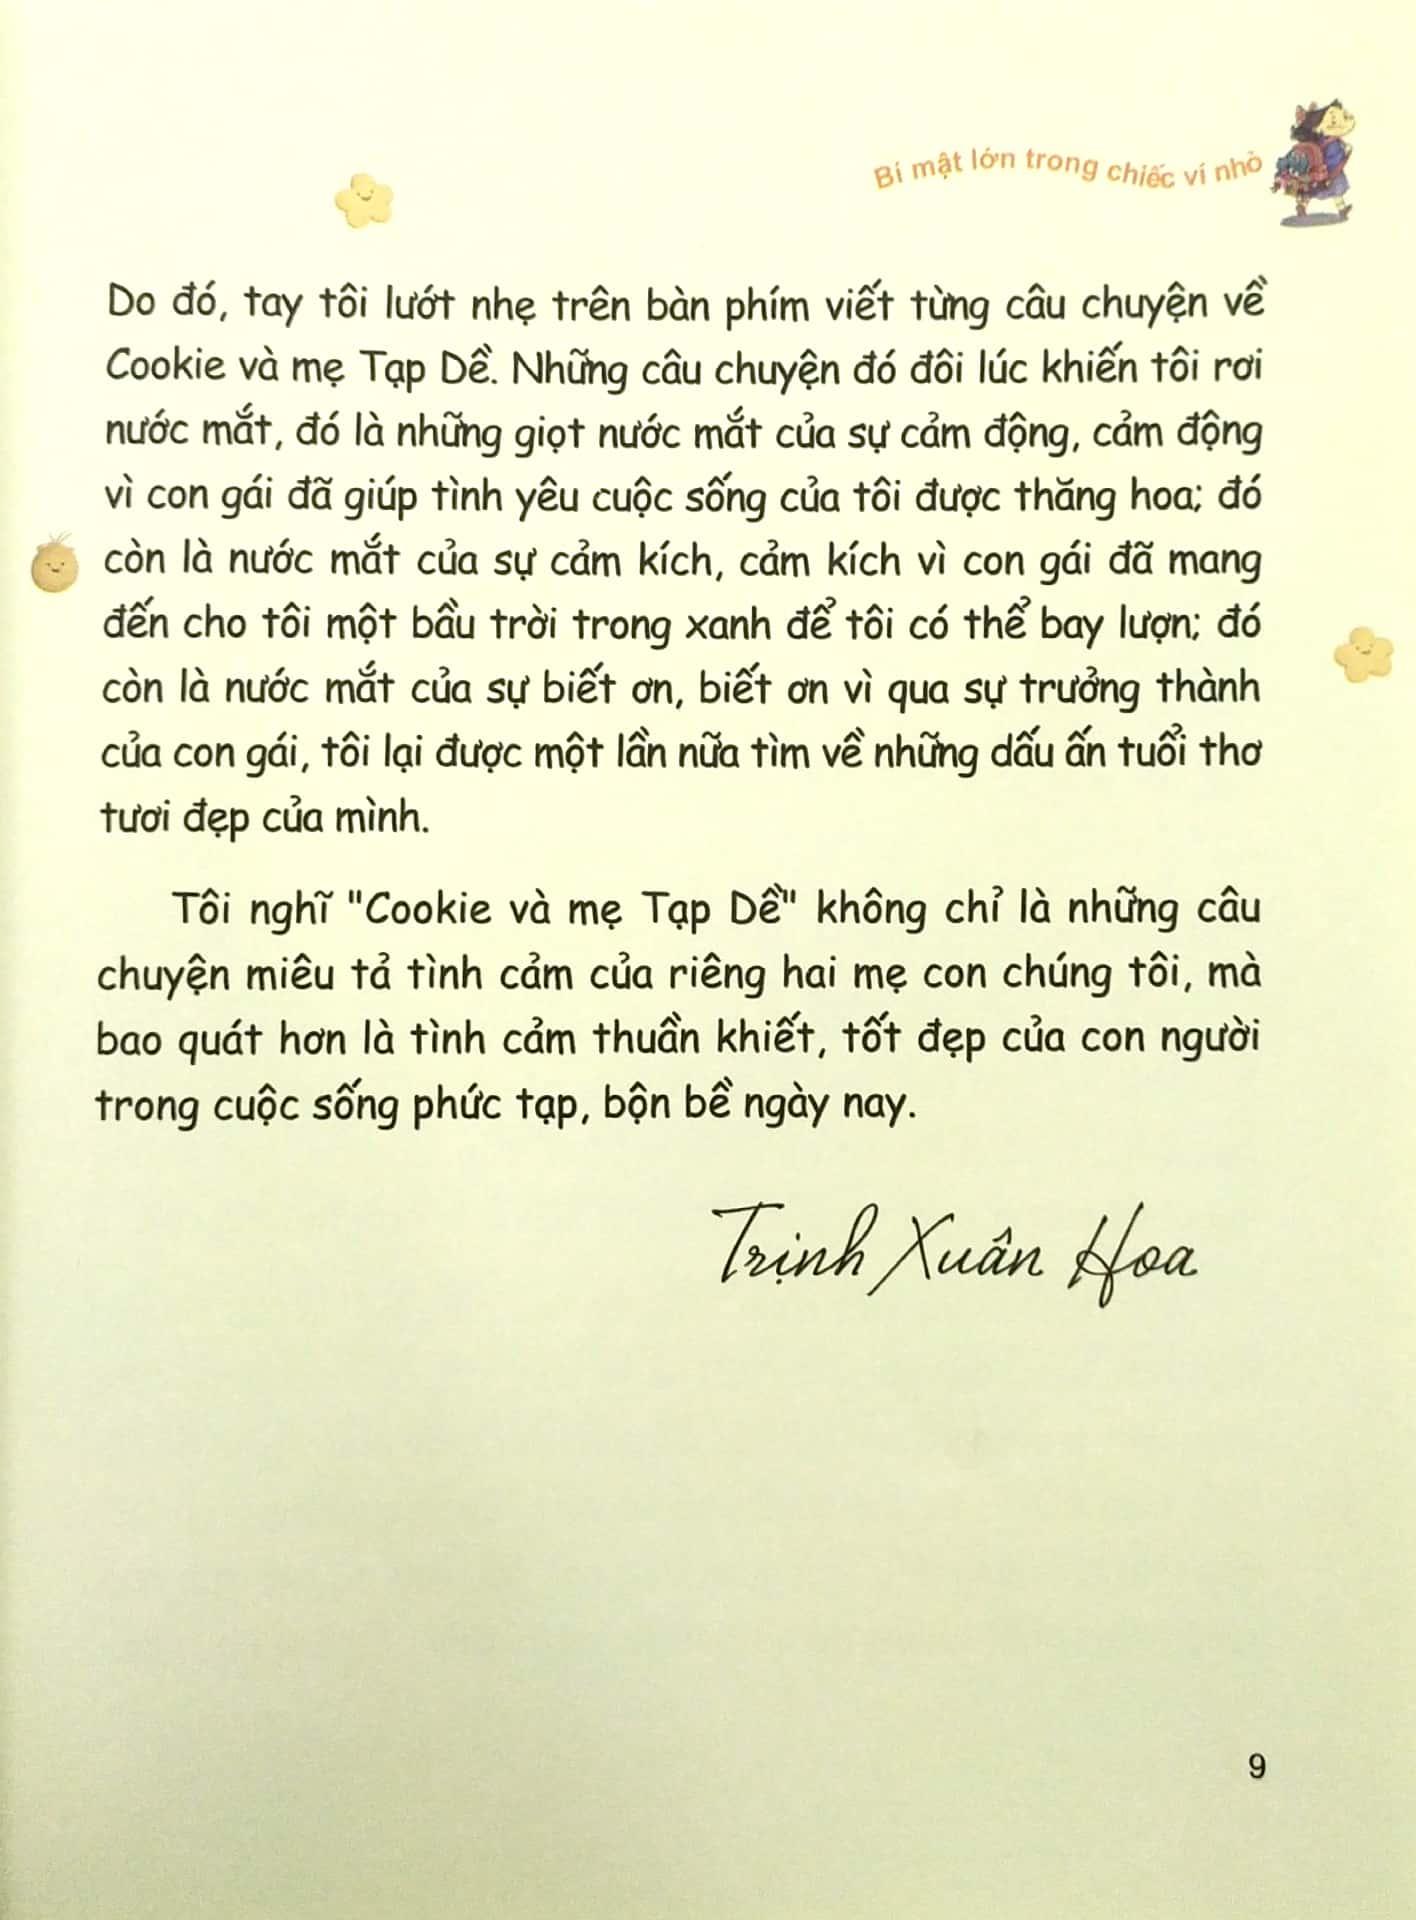 Bí mật lớn trong chiếc ví nhỏ
Do đó, tay tôi lướt nhẹ trên bàn phím viết từng câu chuyện về
Cookie và mẹ Tạp Dề. Những câu chuyện đó đôi lúc khiến tôi rơi
nước mắt, đó là những giọt nước mắt của sự cảm động, cảm động
vì con gái đã giúp tình yêu cuộc sống của tôi được thăng hoa; đó
còn là nước mắt của sự cảm kích, cảm kích vì con gái đã mang
đến cho tôi một bầu trời trong xanh để tôi có thể bay lượn; đó
còn là nước mắt của sự biết ơn, biết ơn vì qua sự trưởng thành
của con gái, tôi lại được một lần nữa tìm về những dấu ấn tuổi thơ
tươi đẹp của mình.
Tôi nghĩ "Cookie và mẹ Tạp Dề" không chỉ là những câu
chuyện miêu tả tình cảm của riêng hai mẹ con chúng tôi, mà
bao quát hơn là tình cảm thuần khiết, tốt đẹp của con người
trong cuộc sống phức tạp, bộn bề ngày nay.
Trịnh Xuân Hoa
9